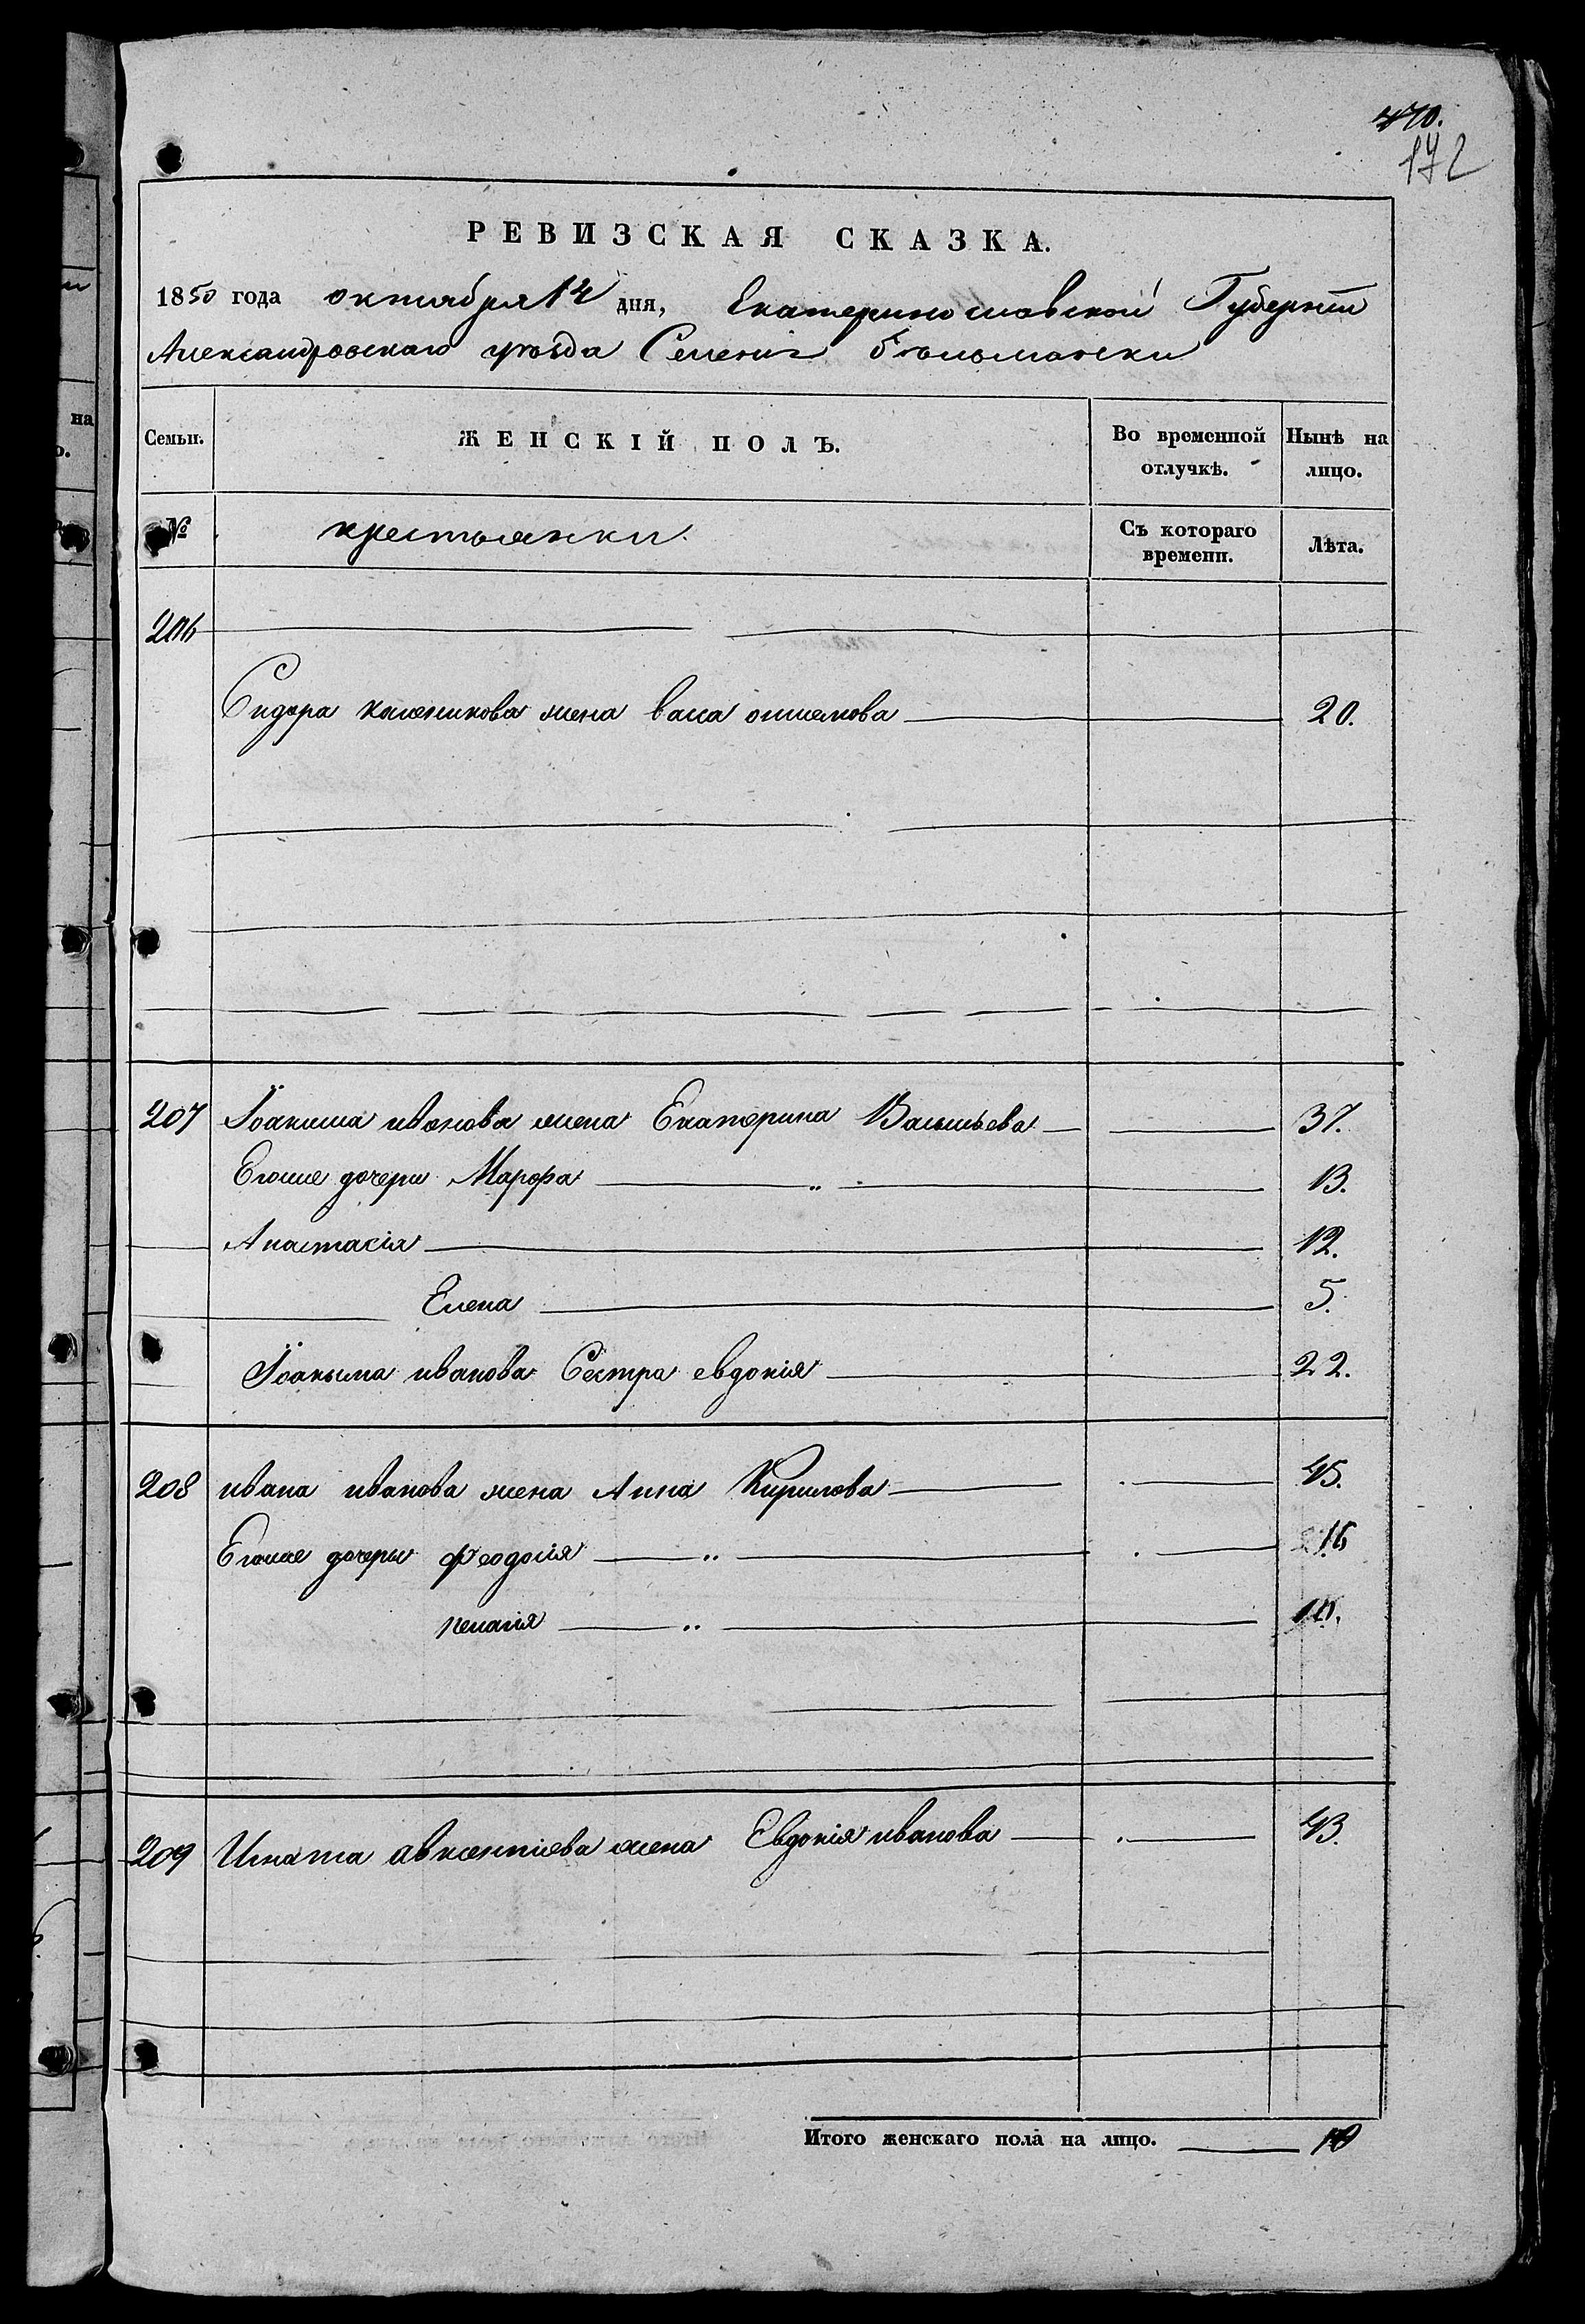 170.
172
РЕВИЗСКАЯ СКАЗКА.
1850 года октября 12 дня, Екатеринославской Губерніи
Александровскаго уѣзда Селенія Бѣльманки
Семьи. ЖЕНСКІЙ ПОЛЪ. Во временной отлучкѣ. Нынѣ на лицо.
№ крестьянки. Съ котораго времени. Лѣта.
206
Сидора каленикова жена васа 20.
207 Іоакима иванова жена Екатерина Васильева 37.
Егоже дочери Марфа 13.
Анастасія 12.
Елена 5.
Іоакыма иванова Сестра евдокія 22.
208 ивана иванова жена Анна Кирилова 45.
Егоже дочери феодосія 16
пелагія 10.
209 Игната авксентіева жена Евдокія иванова 43.
Итого женскаго пола на лицо. 10